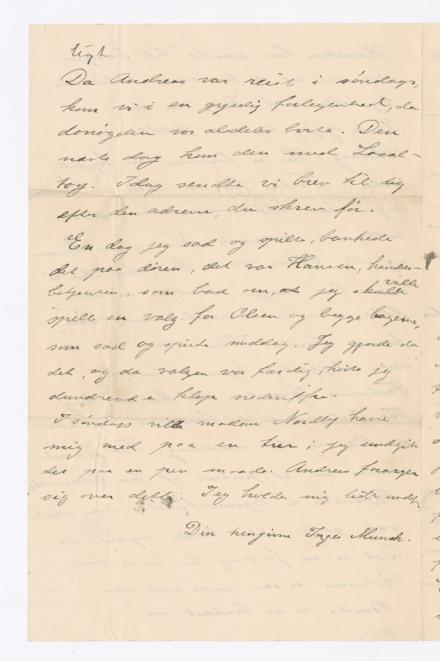 sagt.
Da Andreas var reist i söndags,
kom vi i en gyselig forlegenhed, da
dönöglen var aldeles borte. Den
næste dag kom den med Local-
tog. Idag sendte vi brev til dig
efter den adresse, du skrev før.
En dag jeg sad og spilte, bankede
det paa dören, det var Hansen,
betjenten, som bad om, at jeg vilde
spille en valg for Olsen og begge
som sad og spiste middag. Jeg gjorde da
det, og da valgen var færdig, hörte jeg
dundrende klap nedenfra.
I söndags vilde madam have
mig med paa en tur; jeg undgik
det paa en pen maade. Andreas forarger
sig over dette. Jeg holder mig lidt
Din hengivne Inger Munch.